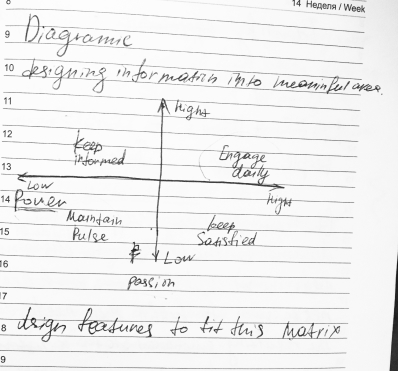 8
14 Неделя / Week
9 Diagrame
10 designing information into meaninful area.
11 Hight
12 keep Engage
informed daily
13
Low Hight
14 Power
Maintain keep
15 Pulse Satisfied
16 Low
passion
17
8 design features to fit this Matrix
9